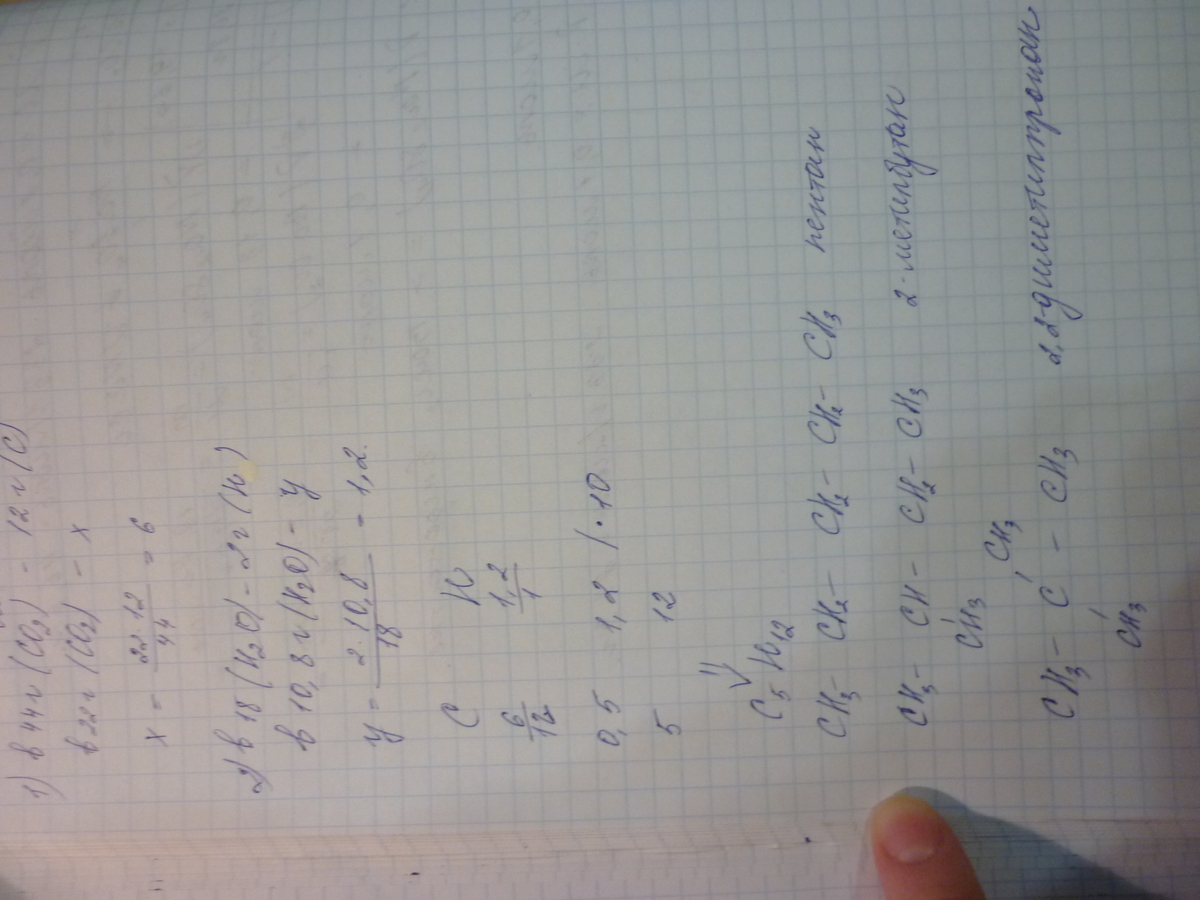 1) в 44 г (CO2) - 12 г (C)
в 22 г (CO2) - x
x = 22·12/44 = 6
2) в 18 (H2O) - 2 г (H)
в 10,8 г (H2O) - y
y = 2·10,8/18 = 1,2.
C H
6/12 1,2/1
0,5 1,2 /·10
5 12
⇓
C5H12
CH3 - CH2 - CH2 - CH2 - CH3 пентан
CH3 - CH - CH2 - CH3 2-метилбутан
CH3
CH3
CH3 - C - CH3 2,2-диметилпропан
CH3